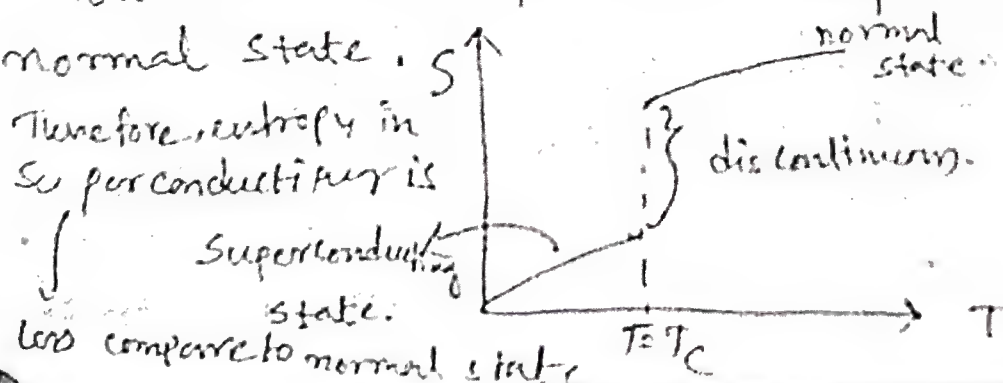 normal state.
Therefore, entropy in
Superconductivity is
less compare to normal state
S
normal
state.
discontinuous.
Superconducting
state.
T = Tc
T